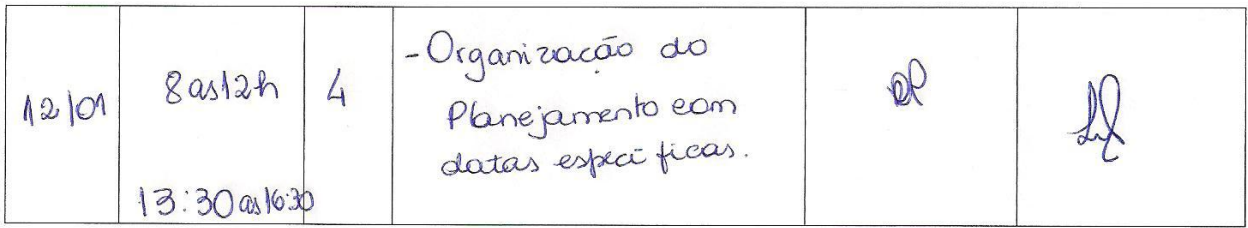 12/01
8 as 12h
13:30 as 16:30
4
- Organização do
Planejamento com
datas específicas.